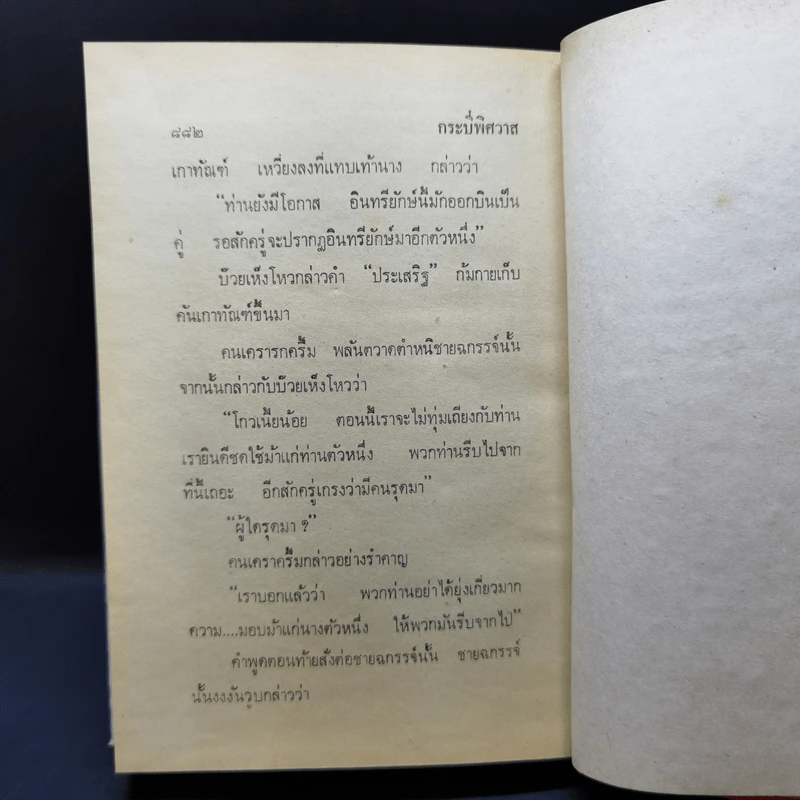 ๘๘๒ กระบี่พิศวาส
เกาทัณฑ์ เหวี่ยงลงที่แทบเท้านาง กล่าวว่า
“ท่านยังมีโอกาส อินทรียักษ์นี้มักออกบินเป็น
คู่ รอสักครู่จะปรากฏอินทรียักษ์มาอีกตัวหนึ่ง”
บ๊วยเห็งโหวกล่าวคำ “ประเสริฐ” ก้มกายเก็บ
คันเกาทัณฑ์ขึ้นมา
คนเครารกครึ้ม พลันตวาดตำหนิชายฉกรรจ์นั้น
จากนั้นกล่าวกับบ๊วยเห็งโหวว่า
“โกวเนี้ยน้อย ตอนนี้เราจะไม่ทุ่มเถียงกับท่าน
เรายินดีชดใช้ม้าแก่ท่านตัวหนึ่ง พวกท่านรีบไปจาก
ที่นี้เถอะ อีกสักครู่เกรงว่ามีคนรุดมา”
“ผู้ใดรุดมา ?”
คนเคราครึ้มกล่าวอย่างรำคาญ
“เราบอกแล้วว่า พวกท่านอย่าได้ยุ่งเกี่ยวมาก
ความ....มอบม้าแก่นางตัวหนึ่ง ให้พวกมันรีบจากไป”
คำพูดตอนท้ายสั่งต่อชายฉกรรจ์นั้น ชายฉกรรจ์
นั้นงงงันวูบกล่าวว่า